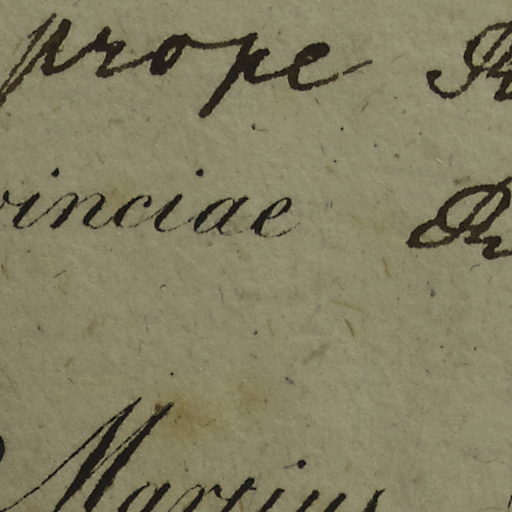 prope R
vinciae R
Martius